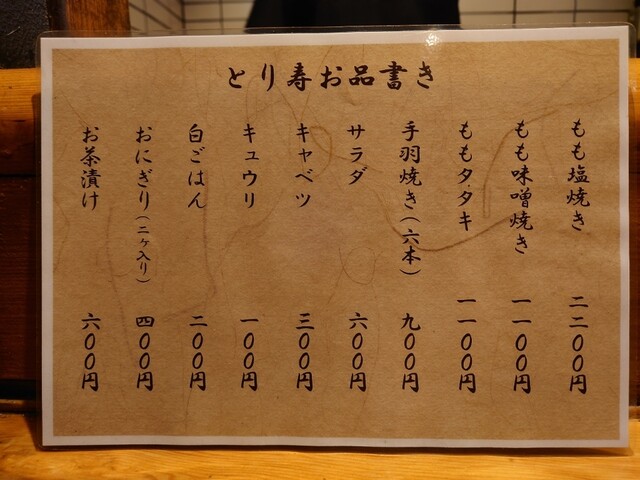 とり寿お品書き
もも塩焼き 二二〇〇円
もも味噌焼き 一一〇〇円
ももタタキ 一一〇〇円
手羽焼き(六本) 九〇〇円
サラダ 六〇〇円
キャベツ 三〇〇円
キュウリ 一〇〇円
白ごはん 二〇〇円
おにぎり(二ヶ入り) 四〇〇円
お茶漬け 六〇〇円